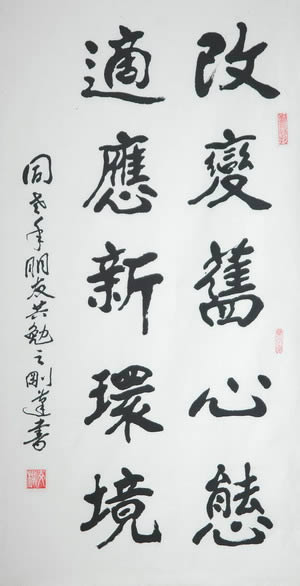 改變舊心態
適應新環境
同老年朋友共勉之剛達書